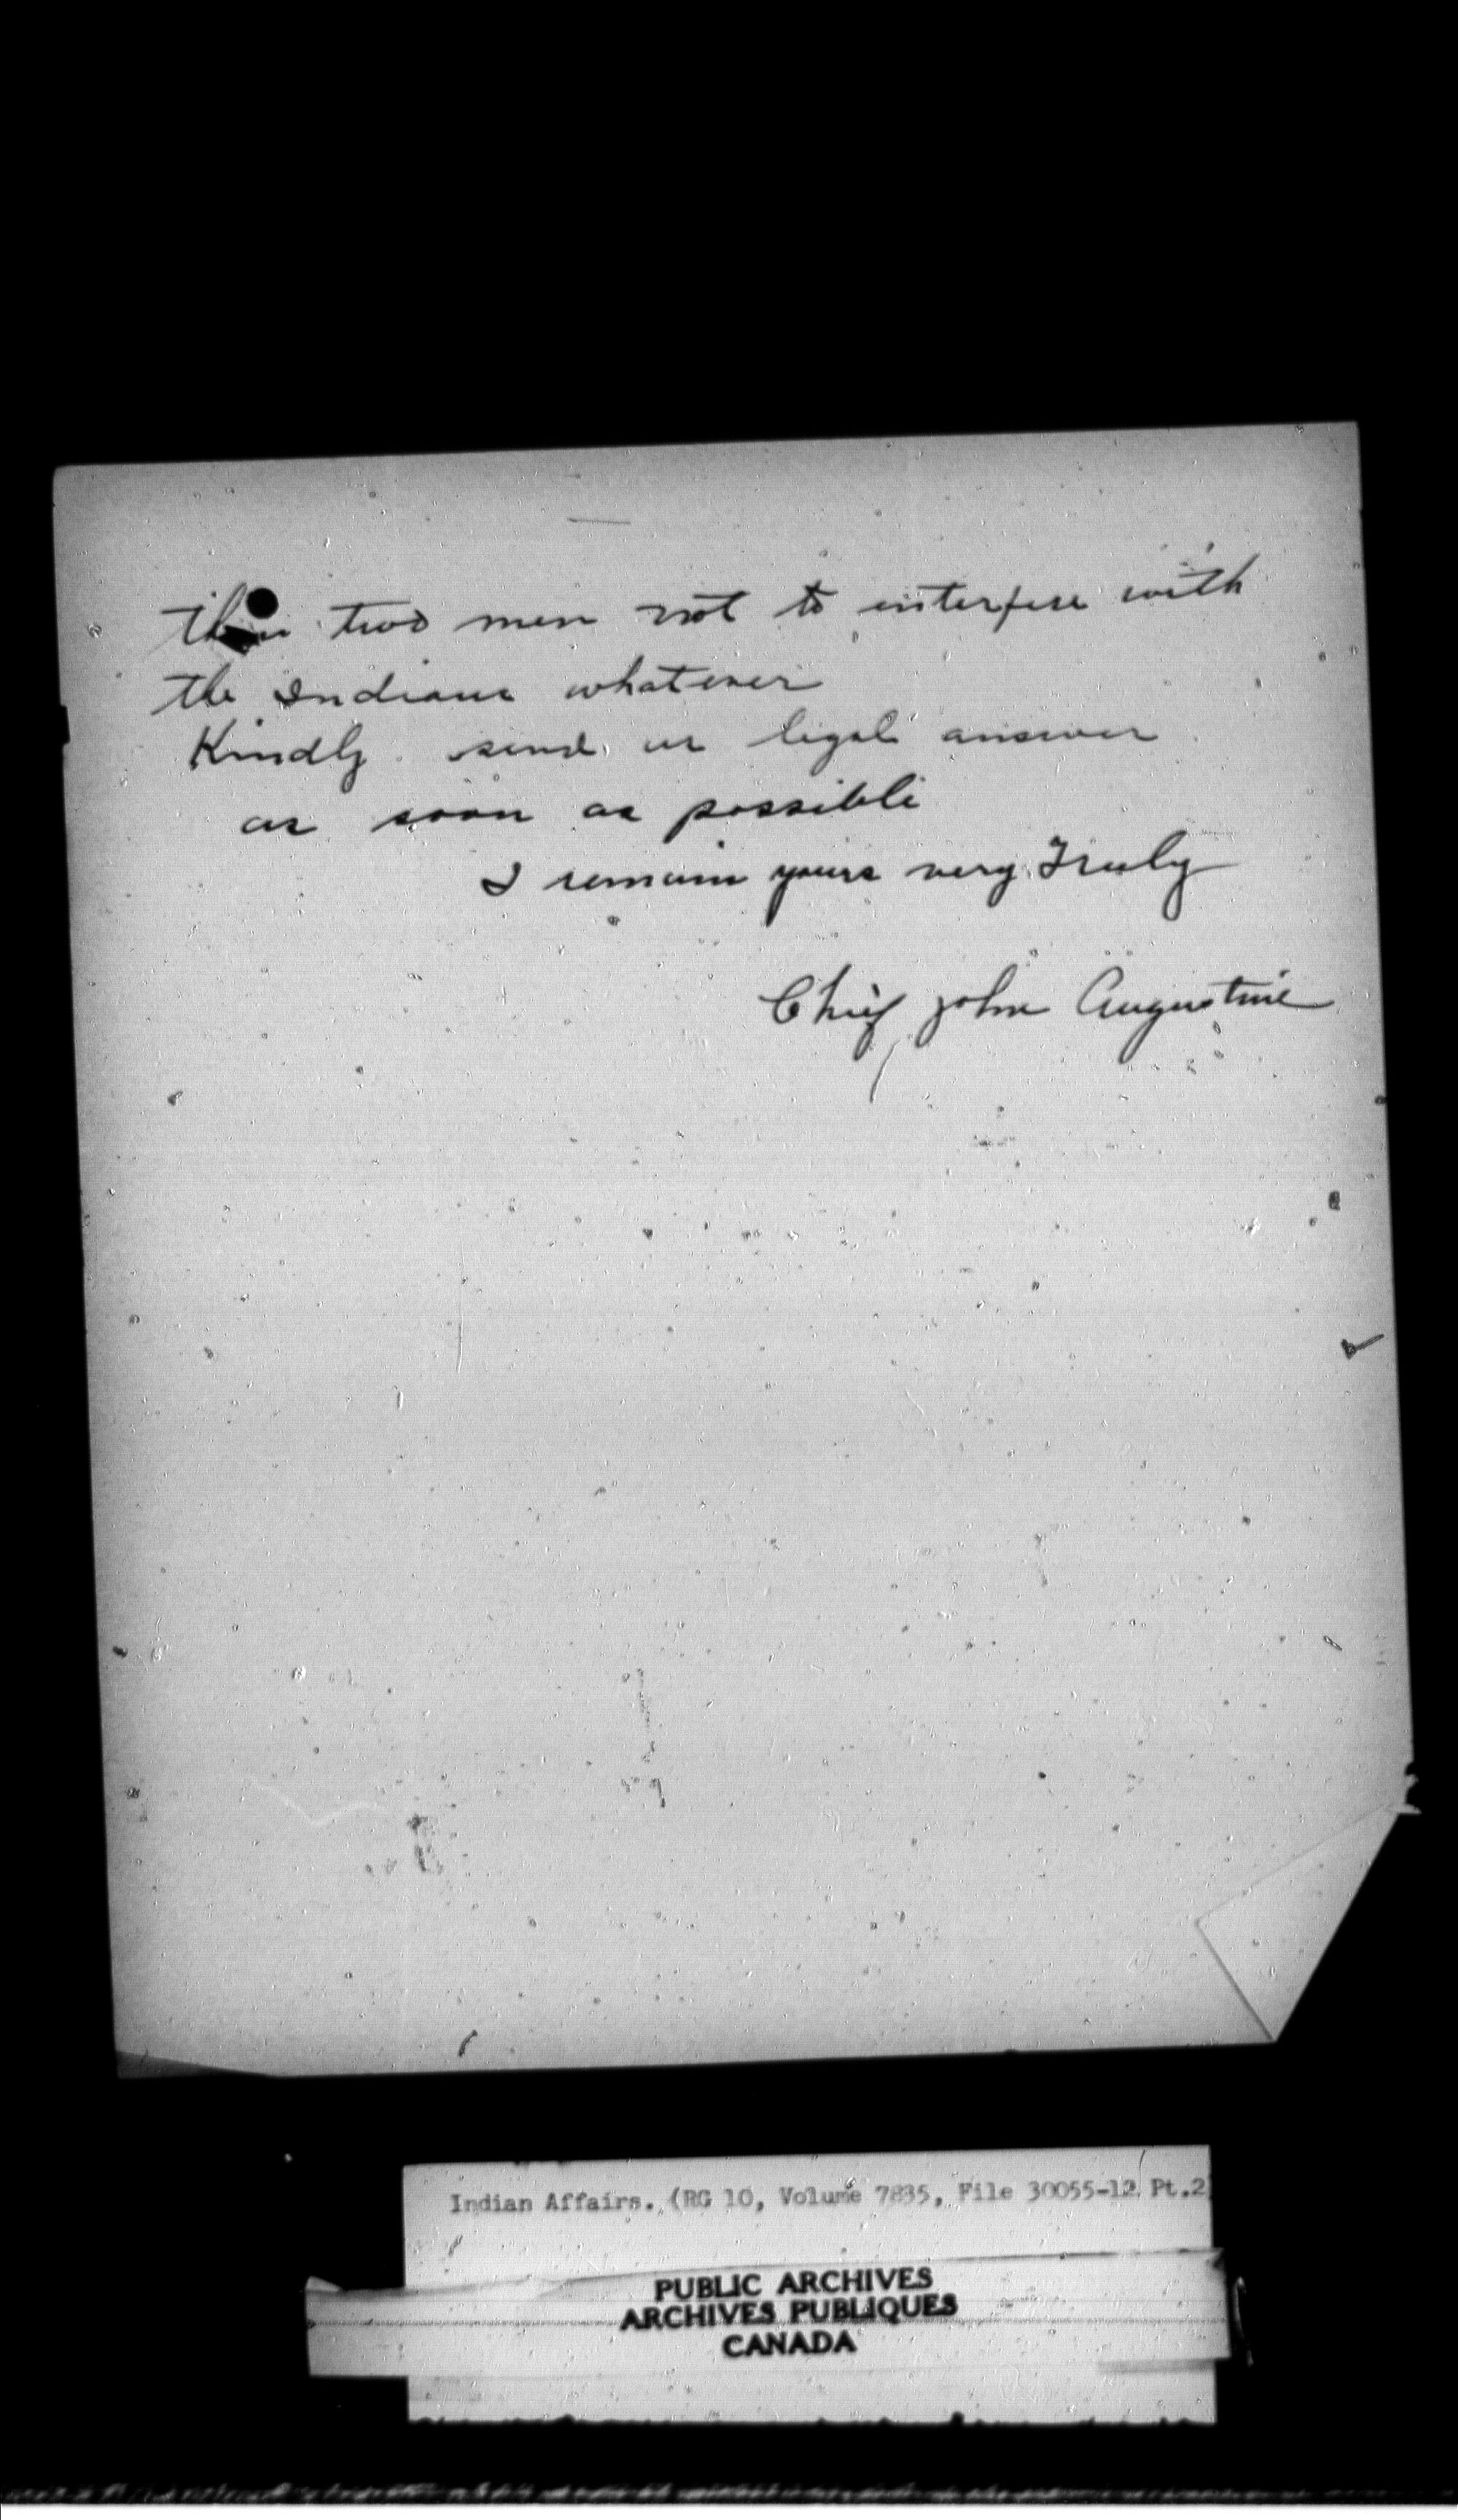 two men not to interfere with
the Indians whatever
Kindly send us legal answer
as soon as possible
I remain yours very Truly
Chief John Augustine
Indian Affairs. (RG 10, Volume 7835, File 30055-12 Pt.2)
PUBLIC ARCHIVES
ARCHIVES PUBLIQUES
CANADA